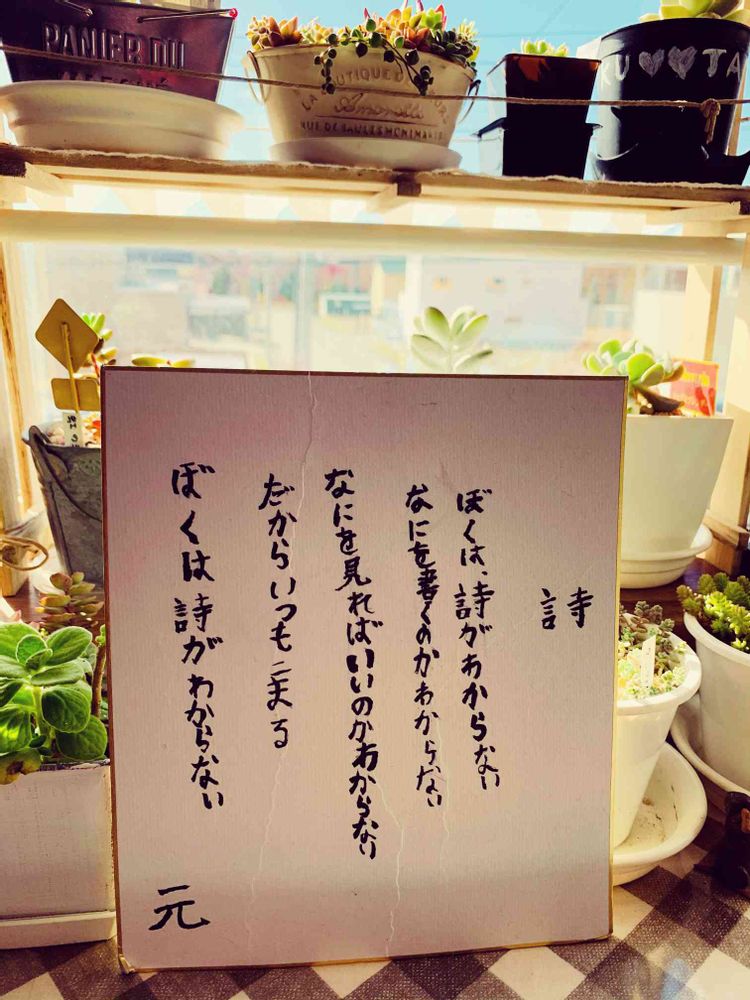 PANIER DU
LA BOUTIQUE DU
RUE DE SAULES MONTMARTRE
詩
ぼくは、詩がわからない
なにを書くのかわからない
なにを見ればいいのかわからない
だからいつもこまる
ぼくは詩がわからない
元